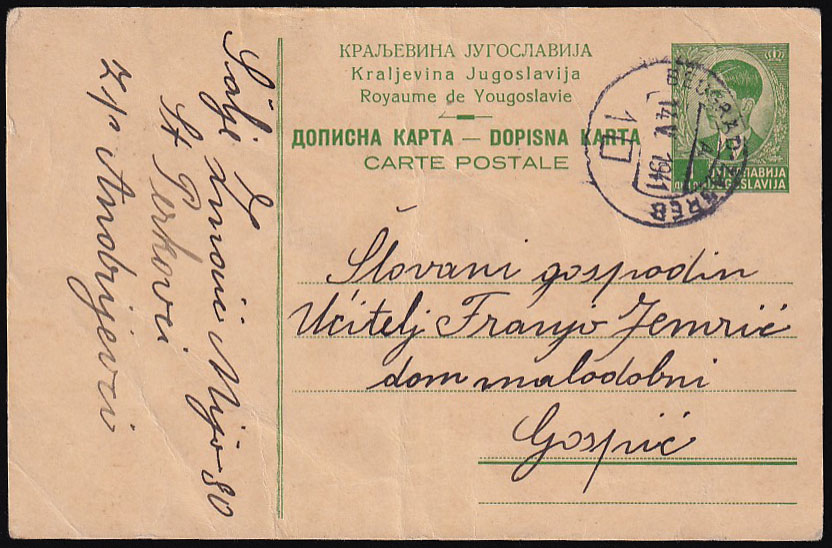 КРАЉЕВИНА ЈУГОСЛАВИЈА
Kraljevina Jugoslavija
Royaume de Yougoslavie
ДОПИСНА КАРТА — DOPISNA KARTA
CARTE POSTALE
ЈУГОСЛАВИЈА
JUGOSLAVIJA
14 V 1941
Slovani gospodin
Učitelj Franjo Jemrić
dom malodobni
Gospić
Šalje
Mijo 80
St Perkovci
z/p Andrijevci